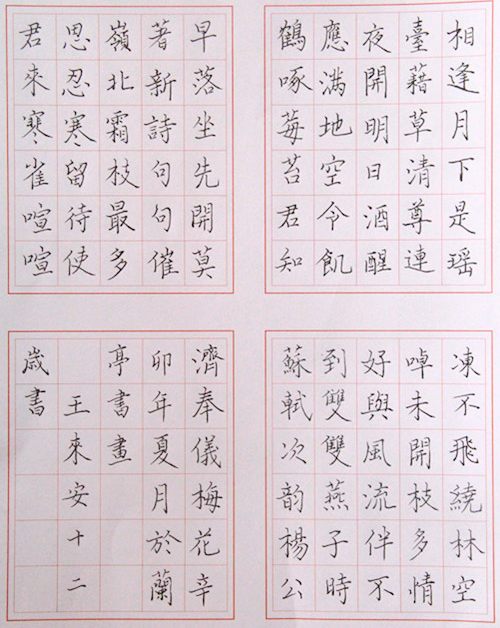 相逢月下是瑶
臺藉草清尊連
夜開明日酒醒
應满地空令飢
鶴啄莓苔君知
早落坐先開莫
著新詩句句催
嶺北霜枝最多
思忍寒留待使
君來寒雀喧喧
凍不飛繞林空
啅未開枝多情
好與風流伴不
到雙雙燕子時
蘇軾次韵楊公
濟奉儀梅花辛
卯年夏月於蘭
亭書畫
王來安十二
歳書